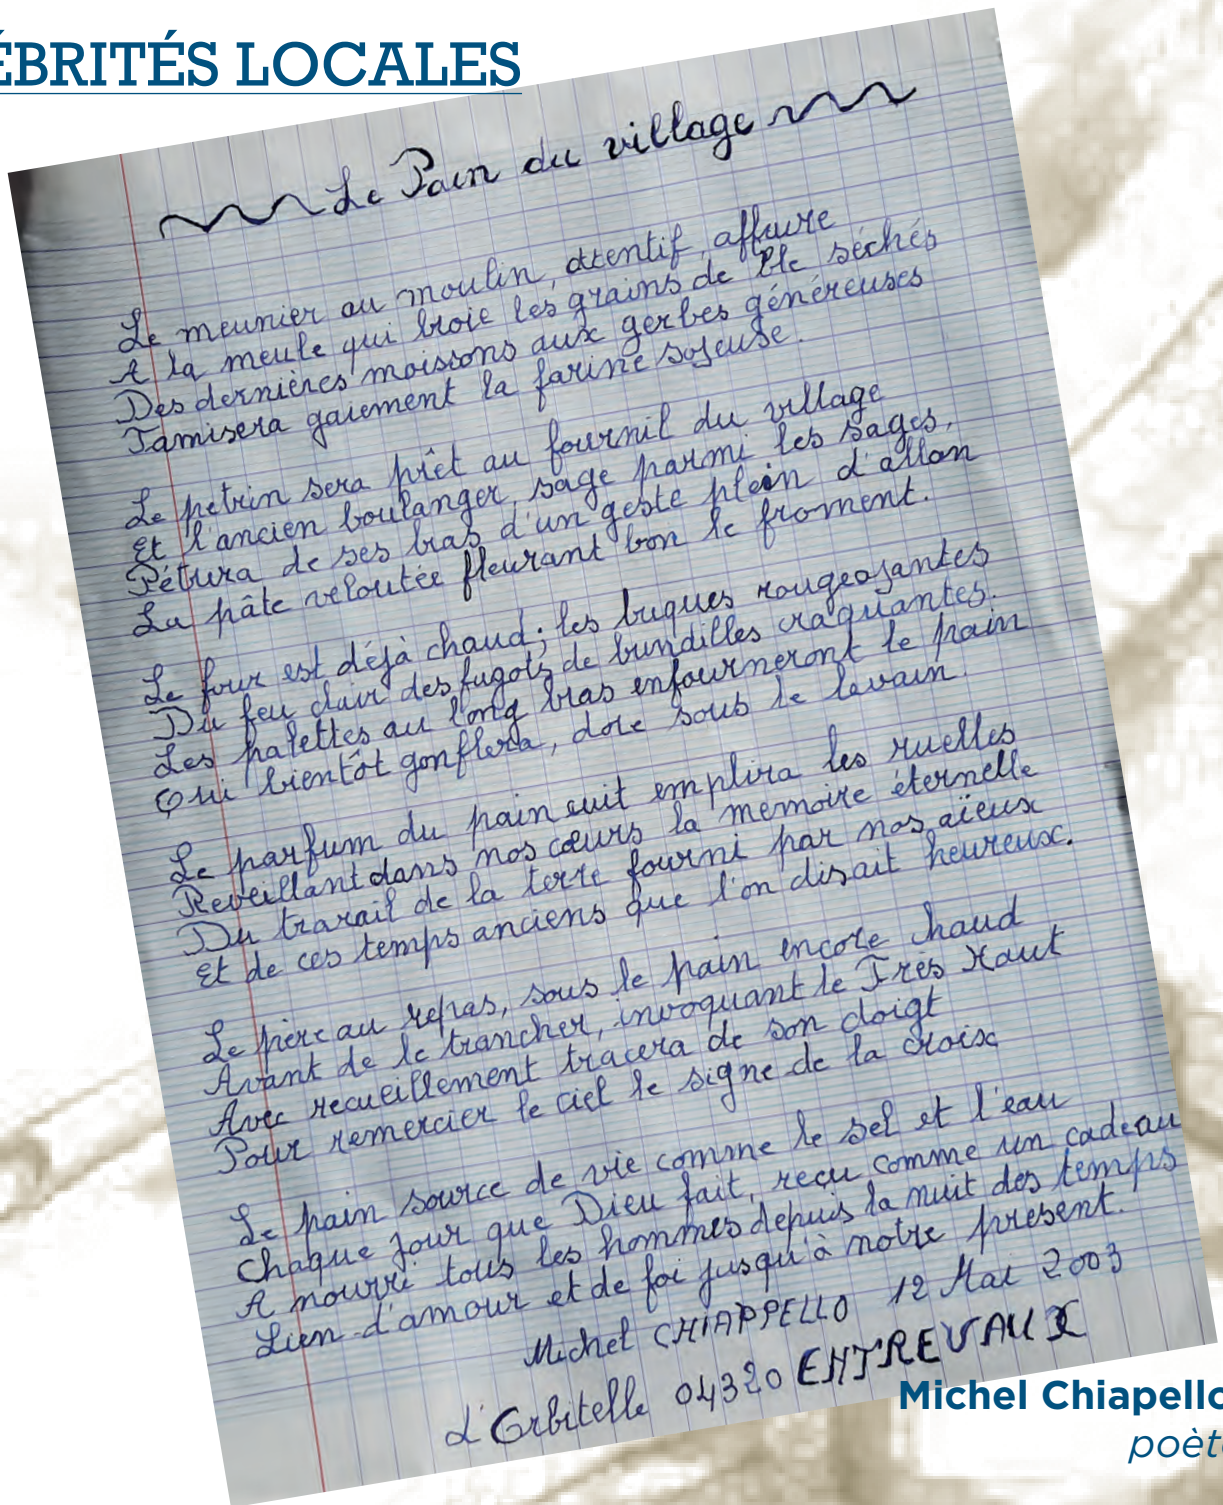 ÉBRITÉS LOCALES
Le Pain du village
Le meunier au moulin, attentif, affaire
A la meule qui broie les grains de blé séchés
Des dernières moissons aux gerbes généreuses
Tamisera gaiement la farine soyeuse.
Le petrin sera prêt au fournil du village
Et l'ancien boulanger, sage parmi les sages,
Pétrira de ses bras d'un geste plein d'allan
La pâte veloutée fleurant bon le froment.
Le four est déjà chaud; les briques rougeoyantes
Du feu clair des fagots de brindilles craquantes.
Les palettes au long bras enfourneront le pain
Qui bientôt gonflera, doré sous le levain.
Le parfum du pain cuit emplira les ruelles
Reveillant dans nos cœurs la memoire éternelle
Du travail de la terre fourni par nos aïeux
Et de ces temps anciens que l'on disait heureux.
Le père au repas, sous le pain encore chaud
Avant de le trancher, invoquant le Très Haut
Avec recueillement tracera de son doigt
Pour remercier le ciel le signe de la croix
Le pain source de vie comme le sel et l'eau
Chaque jour que Dieu fait, reçu comme un cadeau
A nourri tous les hommes depuis la nuit des temps
Lien d'amour et de foi jusqu'à notre présent.
Michel CHIAPPELLO 12 Mai 2003
L'Orbitelle 04320 ENTREVAUX
Michel Chiapello
poète